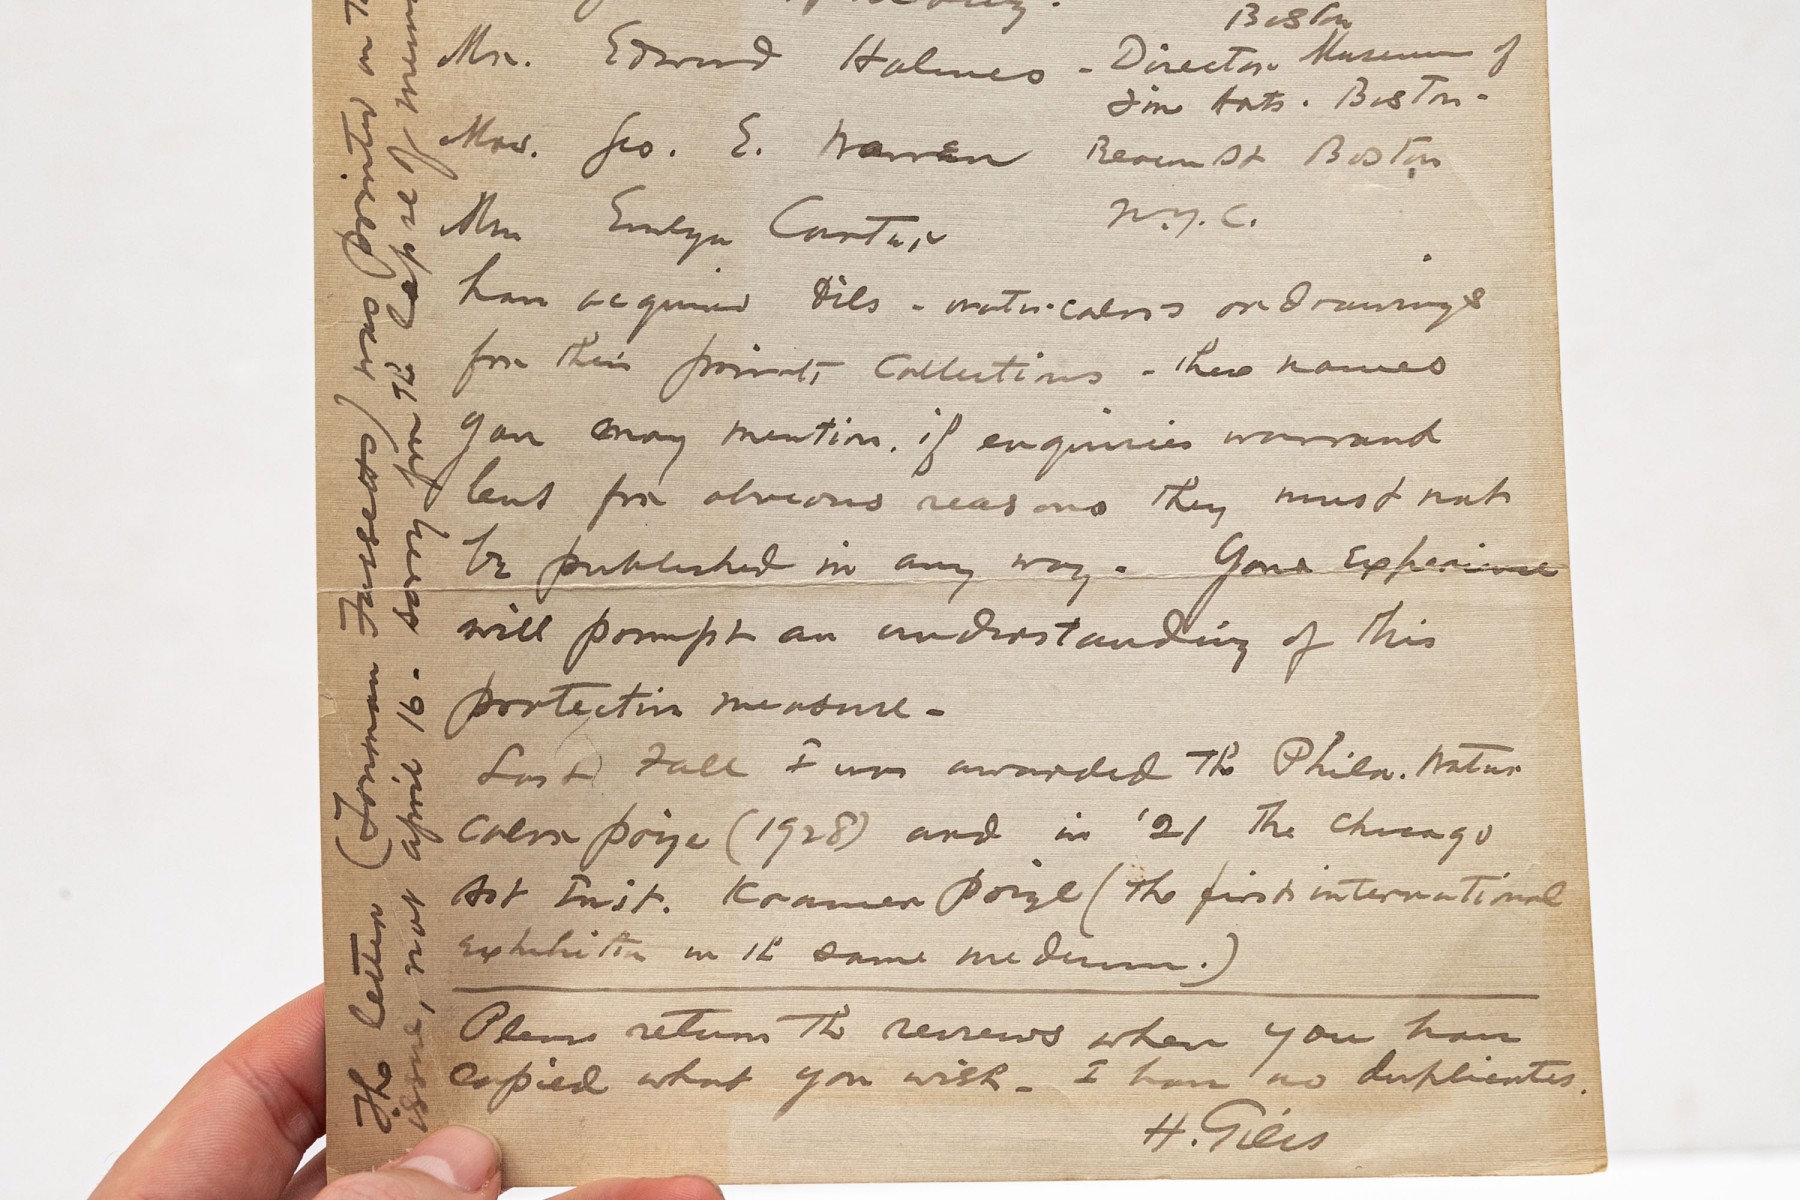 Boston
Mr. Edward Holmes - Director Museum of
Fine Arts. Boston -
Mrs. Geo. E. Warren Beacon St Boston
N.Y.C.
Mrs Evelyn
have acquired Oils - water-colors or drawings
for their private collections - these names
you may mention, if enquiries warrant
but for obvious reasons they must not
be published in any way - Your experience
will prompt an understanding of this
protective measure -
Last Fall I was awarded the Phila. Water
Color prize (1928) and in '21 the Chicago
Art Inst. Kramer prize (the first international
exhibition in the same medium.)
Please return the reviews when you have
copied what you wish - I have no duplicates.
H. Giles
The letter (Forman Fassetts) was printed in
issue, not April 16 - sorry for the lapse of